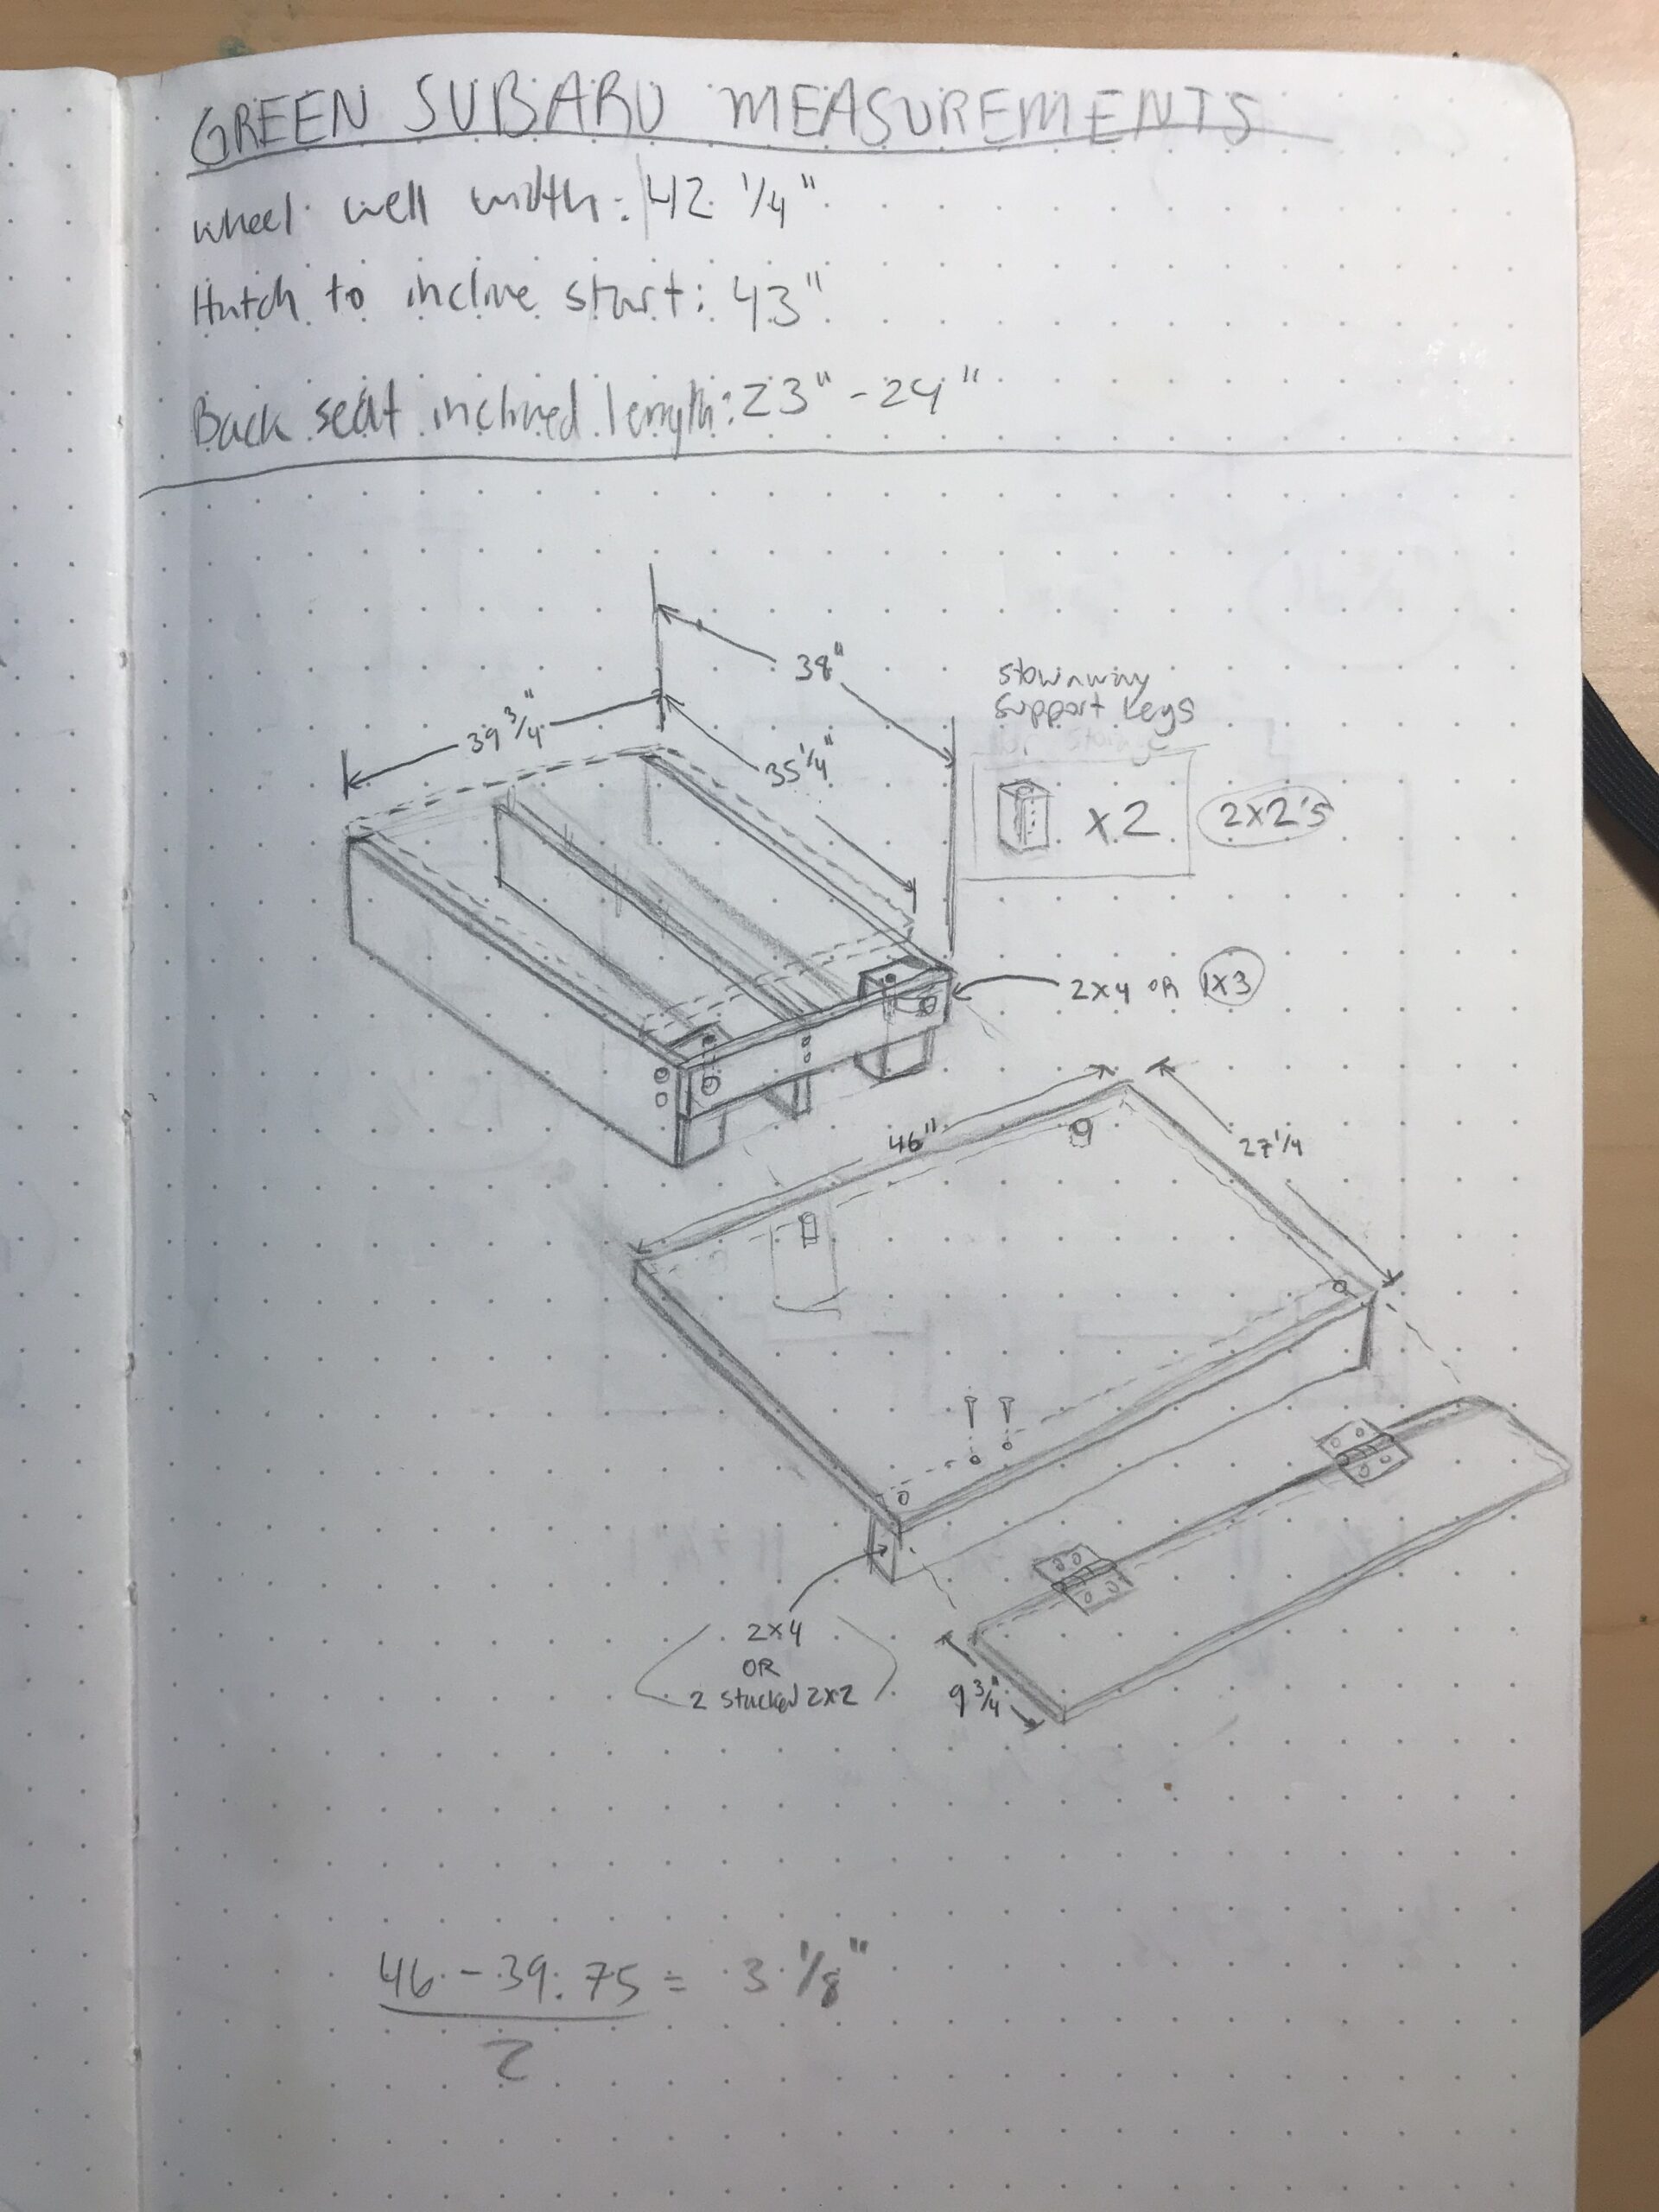 GREEN SUBARU MEASUREMENTS
wheel well width: 42 1/4"
Hatch to incline start: 43"
Back seat inclined length: 23" - 24"
38"
39 3/4"
35 1/4"
stowaway
support legs
x2
2x2's
2x4 OR 1x3
46"
27 1/4
2x4
OR
2 stacked 2x2
9 3/4"
46 - 39.75 = 3 1/8"
2